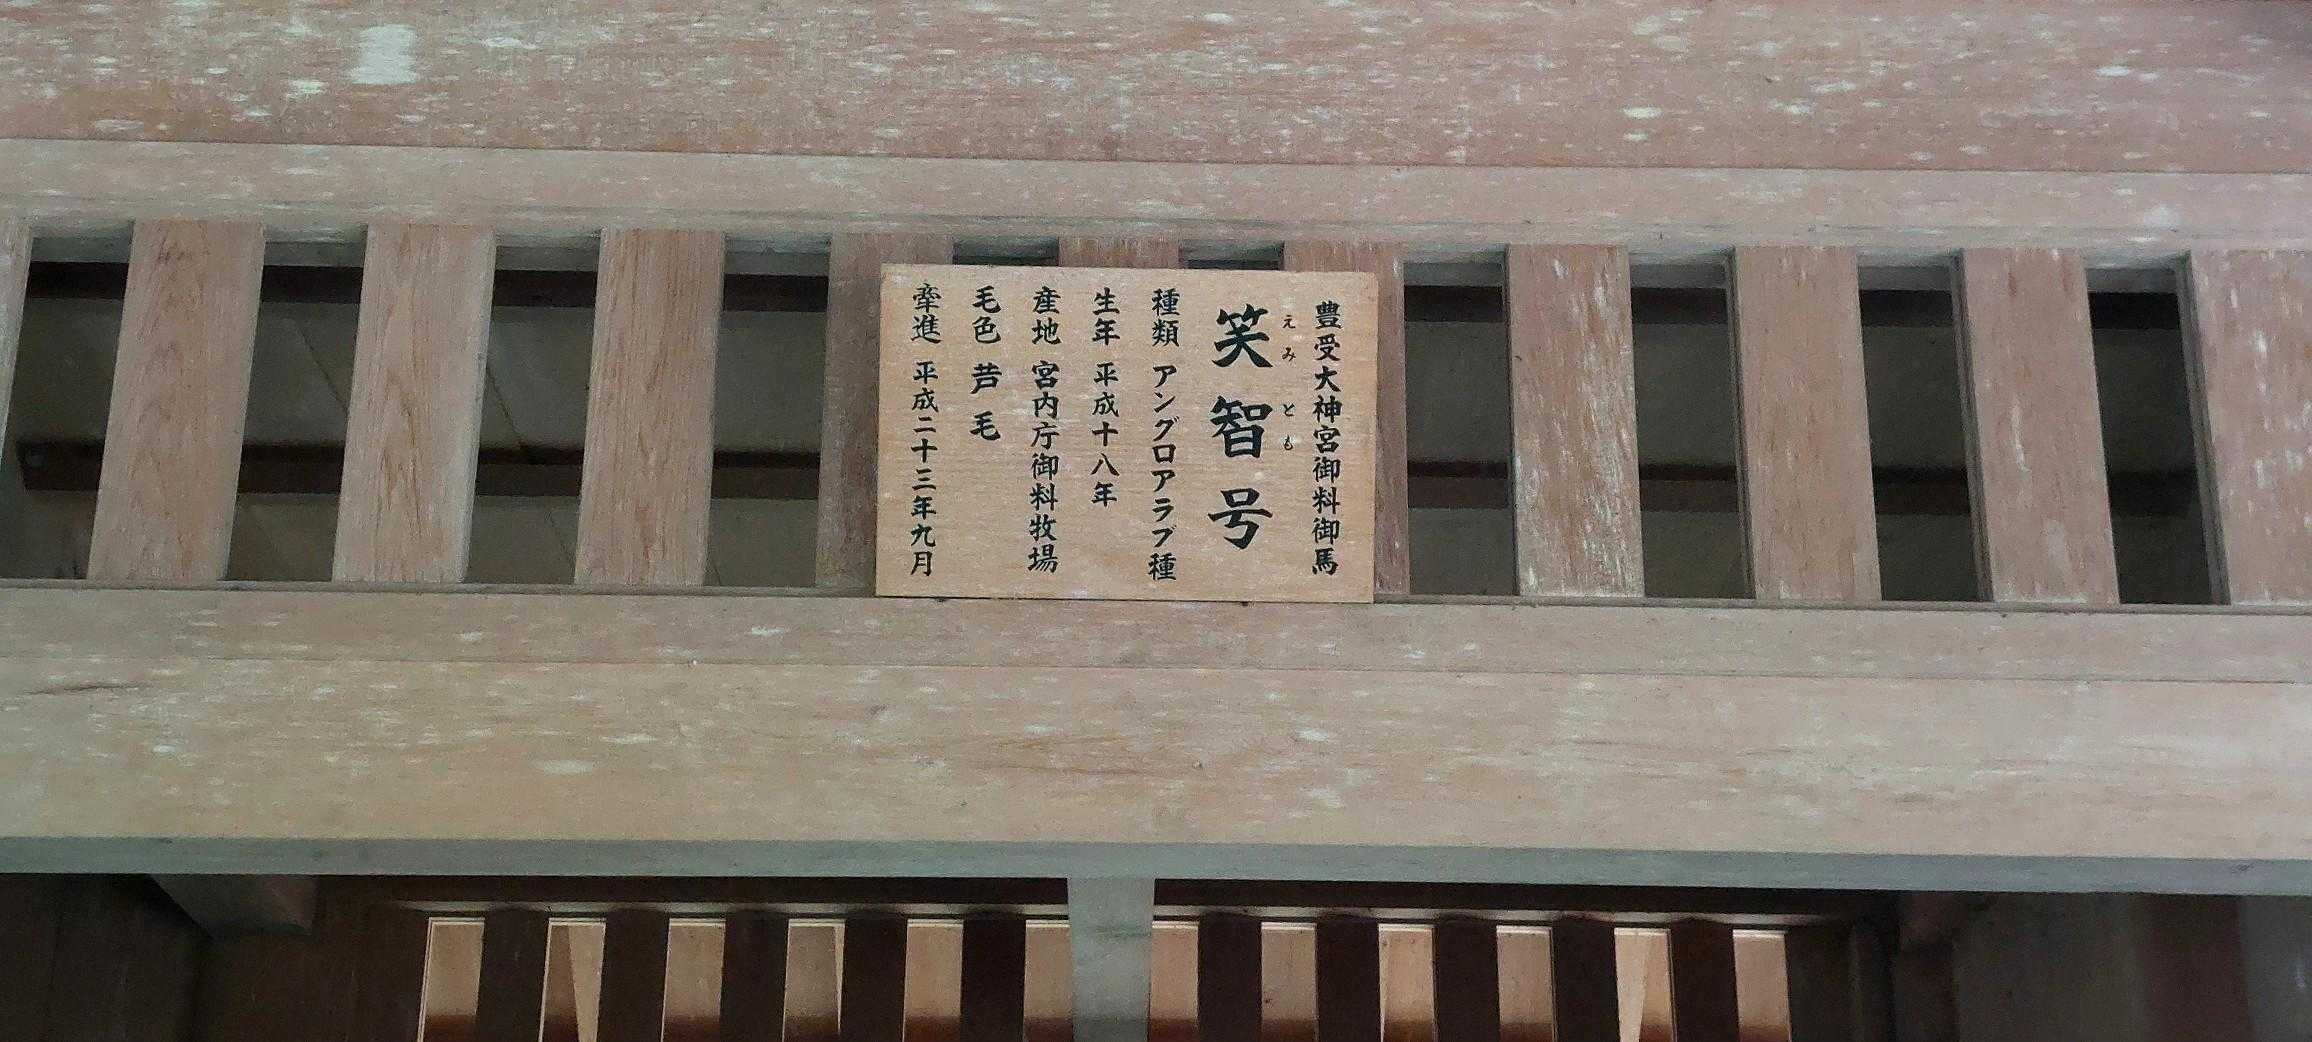 豊受大神宮御料御馬
えみとも
笑智号
種類 アングロアラブ種
生年 平成十八年
産地 宮内庁御料牧場
毛色 芦毛
牽進 平成二十三年九月